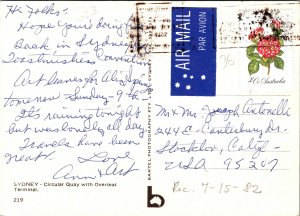 Hi folks:
Hope you're doing fine
Back in Sydney
Toastmistress Convention
Art leaves for Alice Springs
tomorrow Sunday - 9th
It's raining tonight
but was lovely all day.
Travels have been
great. Love
Ann & Art
SYDNEY - Circular Quay with Overseas
Terminal.
219
BARTEL PHOTOGRAPHY PTY
AIR MAIL
PAR AVION
Australia
Mr & Mrs Joseph Antonelli
244 E. Canterbury Dr.
Stockton, Calif.
USA 95207
Rec. 7-15-82